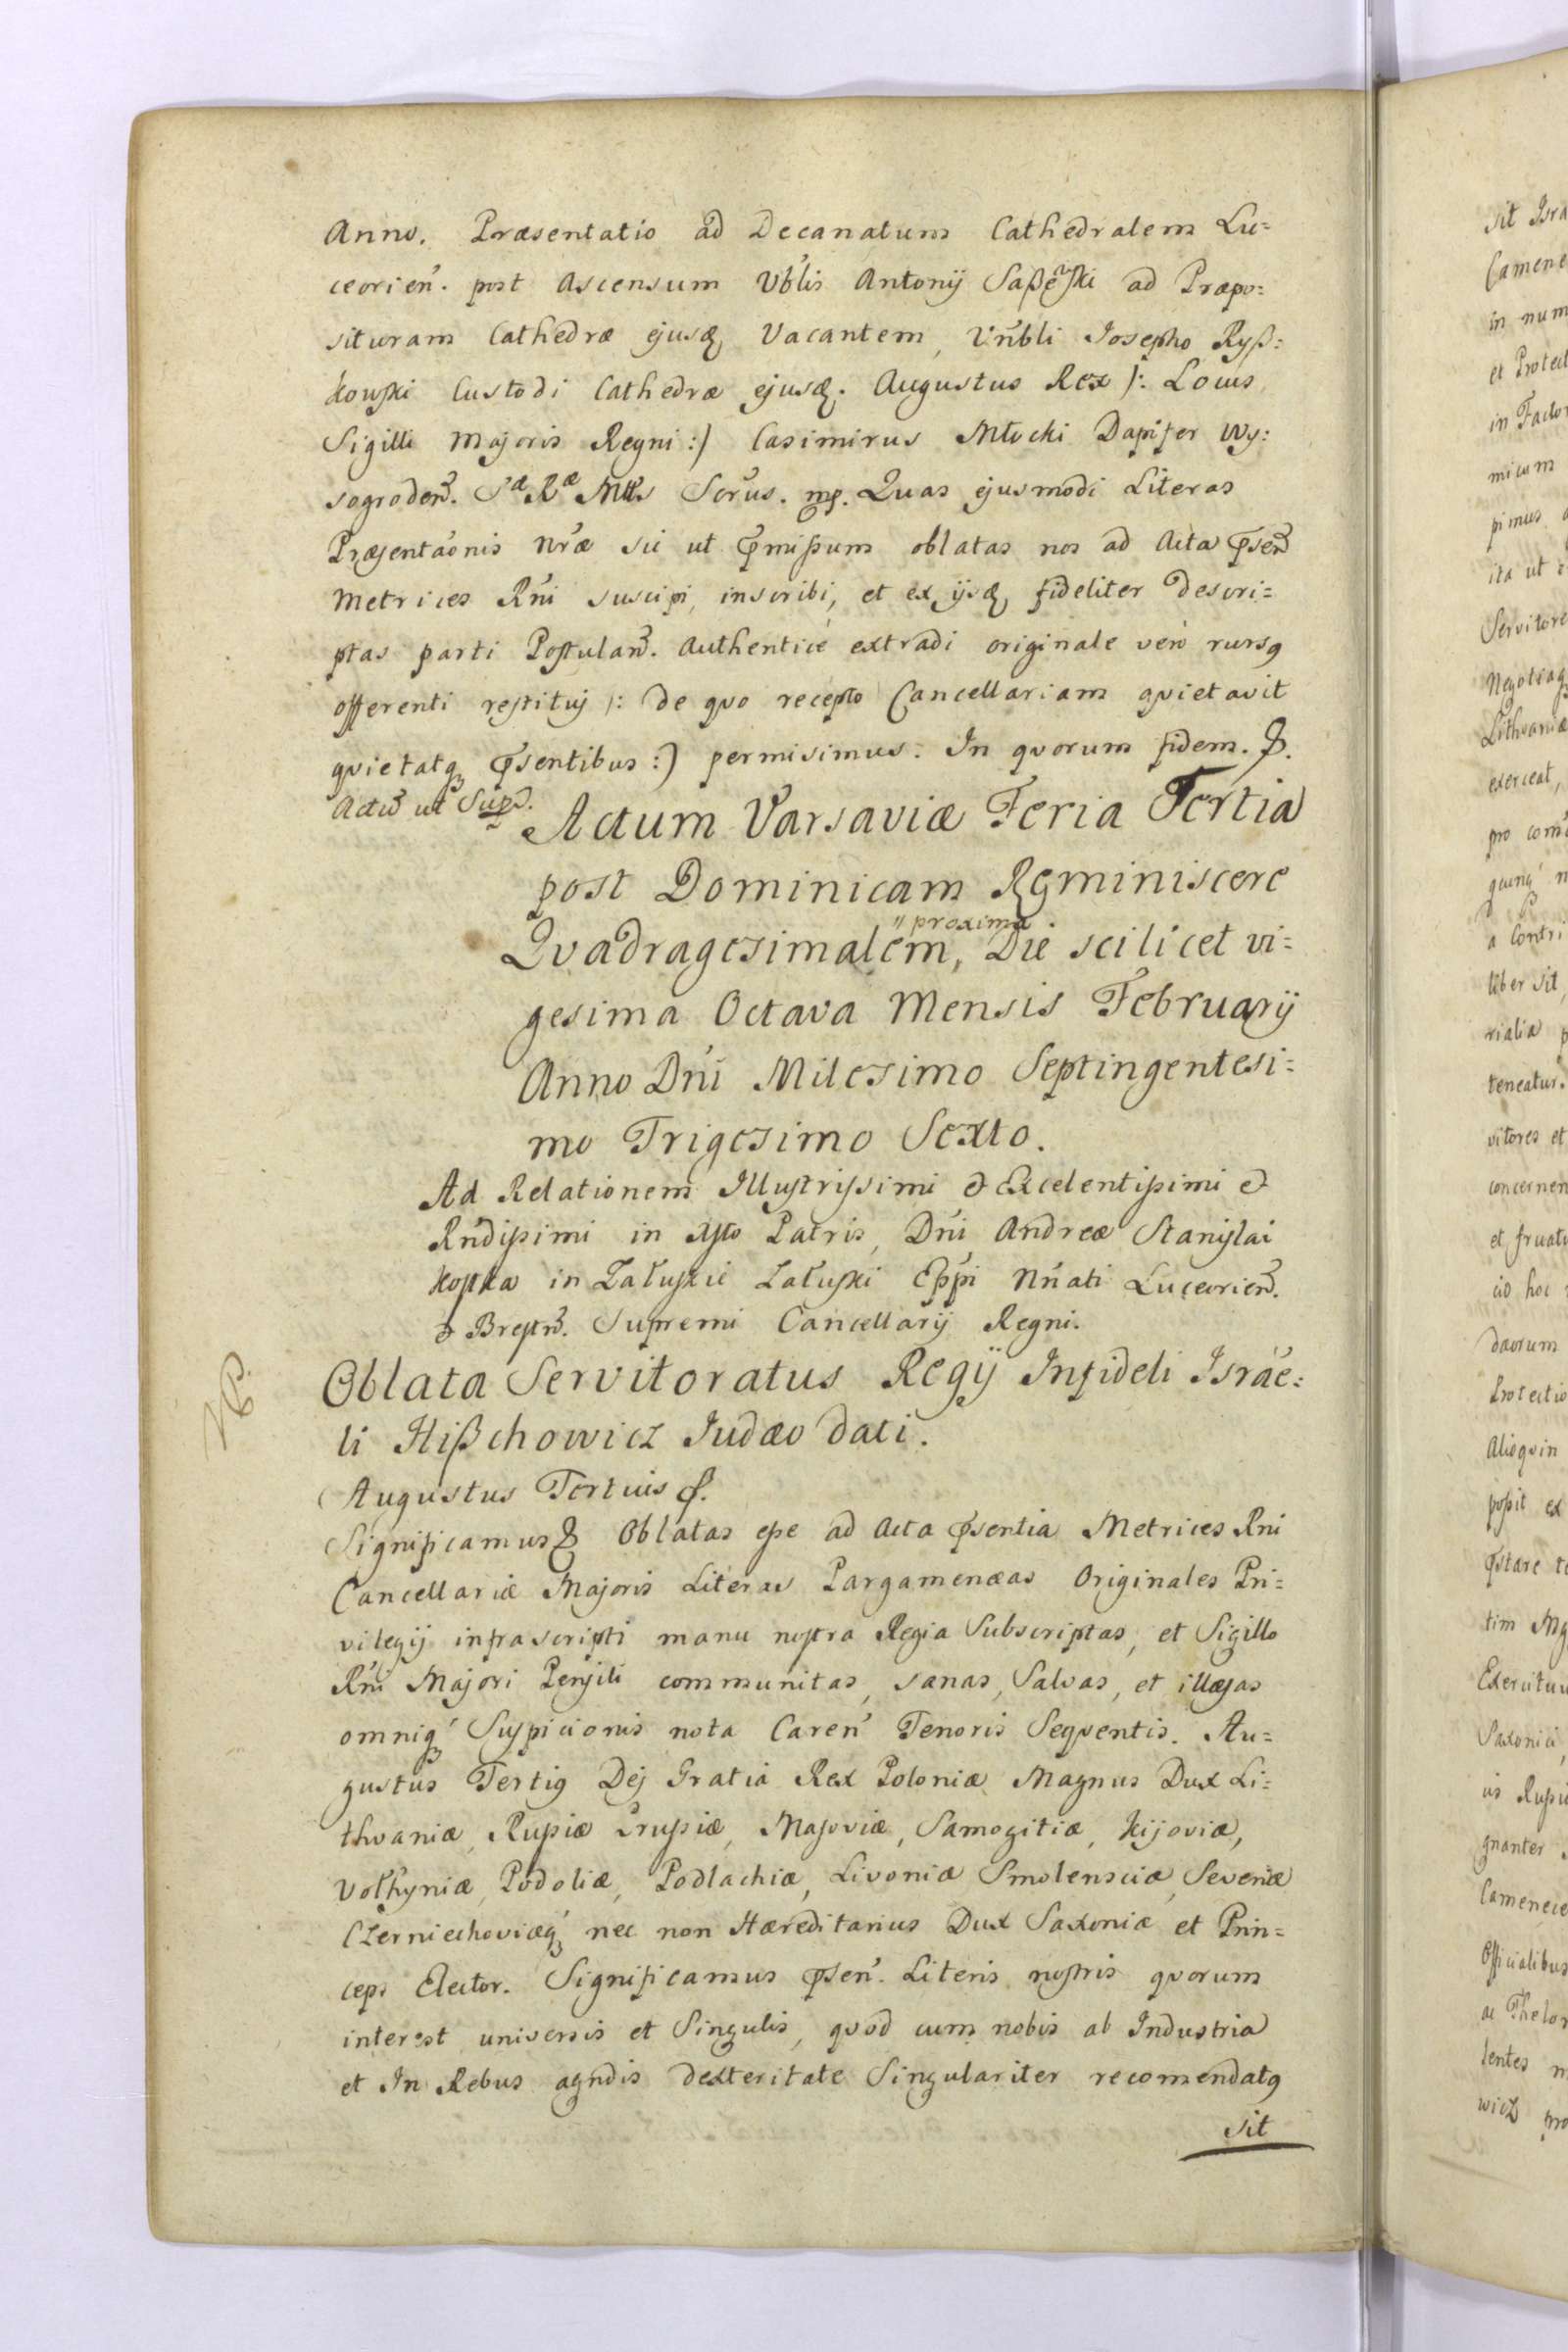 Anno. Præsentatio ad Decanatum Cathedralem Lu=
ceorien̄. post Ascensum Vblis Antonij ad Præpo=
situram Cathedræ ejusꝗ Vacantem, Vnbli Josepho Ryß=
kowski Custodi Cathedræ ejusꝗ. Augustus Rex /: Locus
Sigilli Majoris Regni :/ Casimirus Młocki Dapifer Wy:
sogroden̄. Sæ Ræ Mttis Scrus. mp. Quas ejusmodi Literas
Præsentaonis nræ sic ut p̄mißum oblatas nos ad Acta p̄sen̄
Metrices Rni suscipi, inscribi, et ex ijsꝗ fideliter descri=
ptas parti Postulan̄. Authentice extradi originale vero rursꝰ
offerenti restitui /: de quo recepto Cancellariam quietavit
quietatꝗ p̄sentibus :/ permisimus. In quorum fidem. &.
Actū ut Supr̄.
Actum Varsaviæ Feria Tertia
post Dominicam Reminiscere
Quadragesimalem, "proxima Die scilicet vi=
gesima Octava Mensis Februarij
Anno Dni Milesimo Septingentesi=
mo Trigesimo Sexto.
Ad Relationem Illustrissimi & Excelentißimi &
Rndißimi in Xsto Patris, Dni Andreæ Stanislai
Kostka in Załuskie Załuski Eppi Nnati Luceorien̄.
& Brestn̄. Supremi Cancellarij Regni.
NB.
Oblata Servitoratus Regij Infideli Israe=
li Hißchowicz Judæo dati.
Augustus Tertius &.
Significamus & Oblatas eße ad Acta p̄sentia Metrices Rni
Cancellariæ Majoris Literas Pargamenæas Originales Pri=
vilegij infrascripti manu nostra Regia Subscriptas, et Sigillo
Rni Majori Pensili communitas, sanas, Salvas, et illæsas
omniqꝫ Suspicionis nota Caren̄ Tenoris Sequentis. Au=
gustus Tertiꝰ Dei Gratia Rex Poloniæ Magnus Dux Li=
thvaniæ, Rußiæ Prußiæ, Masoviæ, Samogitiæ, Kijoviæ,
Volhyniæ, Podoliæ, Podlachiæ, Livoniæ Smolensciæ, Severiæ
Czerniechoviæqꝫ nec non Hæreditarius Dux Saxoniæ et Prin=
ceps Elector. Significamus p̄sen̄. Literis nostris quorum
interest universis et Singulis, quod cum nobis ab Industria
et In Rebus agndis dexteritate Singulariter recomendatꝰ
sit